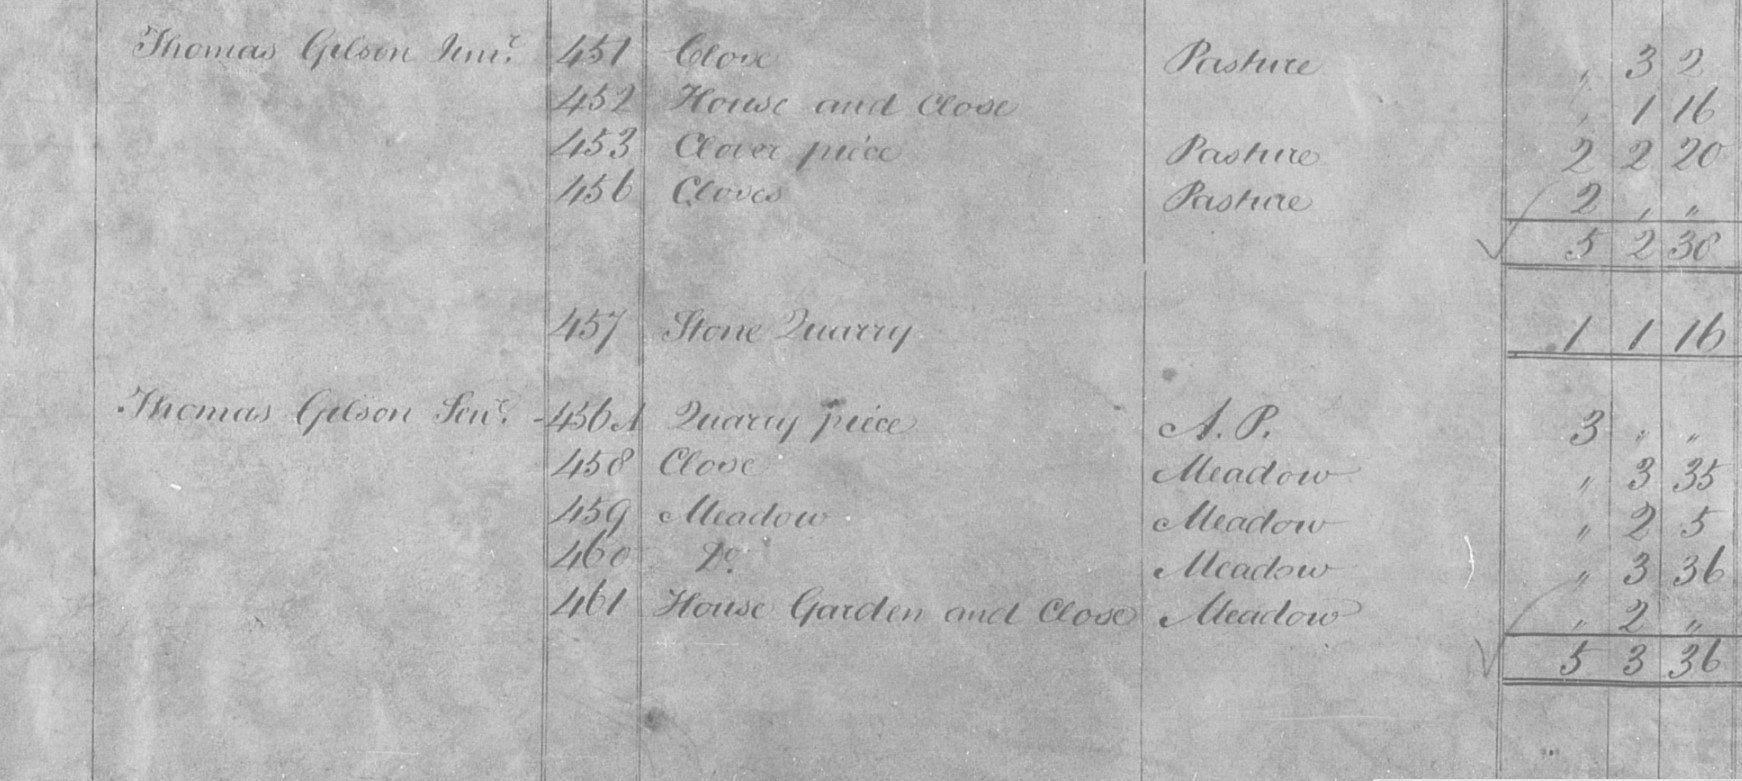 Thomas Gilson Junr. 451 Close Pasture „ 3 2
452 House and Close „ 1 16
453 Clover piece Pasture 2 2 20
456 Closes Pasture 2 „ „
5 2 38
457 Stone Quarry 1 1 16
Thomas Gilson Senr. 456A Quarry piece A. P. 3 „ „
458 Close Meadow „ 3 35
459 Meadow Meadow „ 2 5
460 Do. Meadow „ 3 36
461 House Garden and Close Meadow „ 2 „
5 3 36